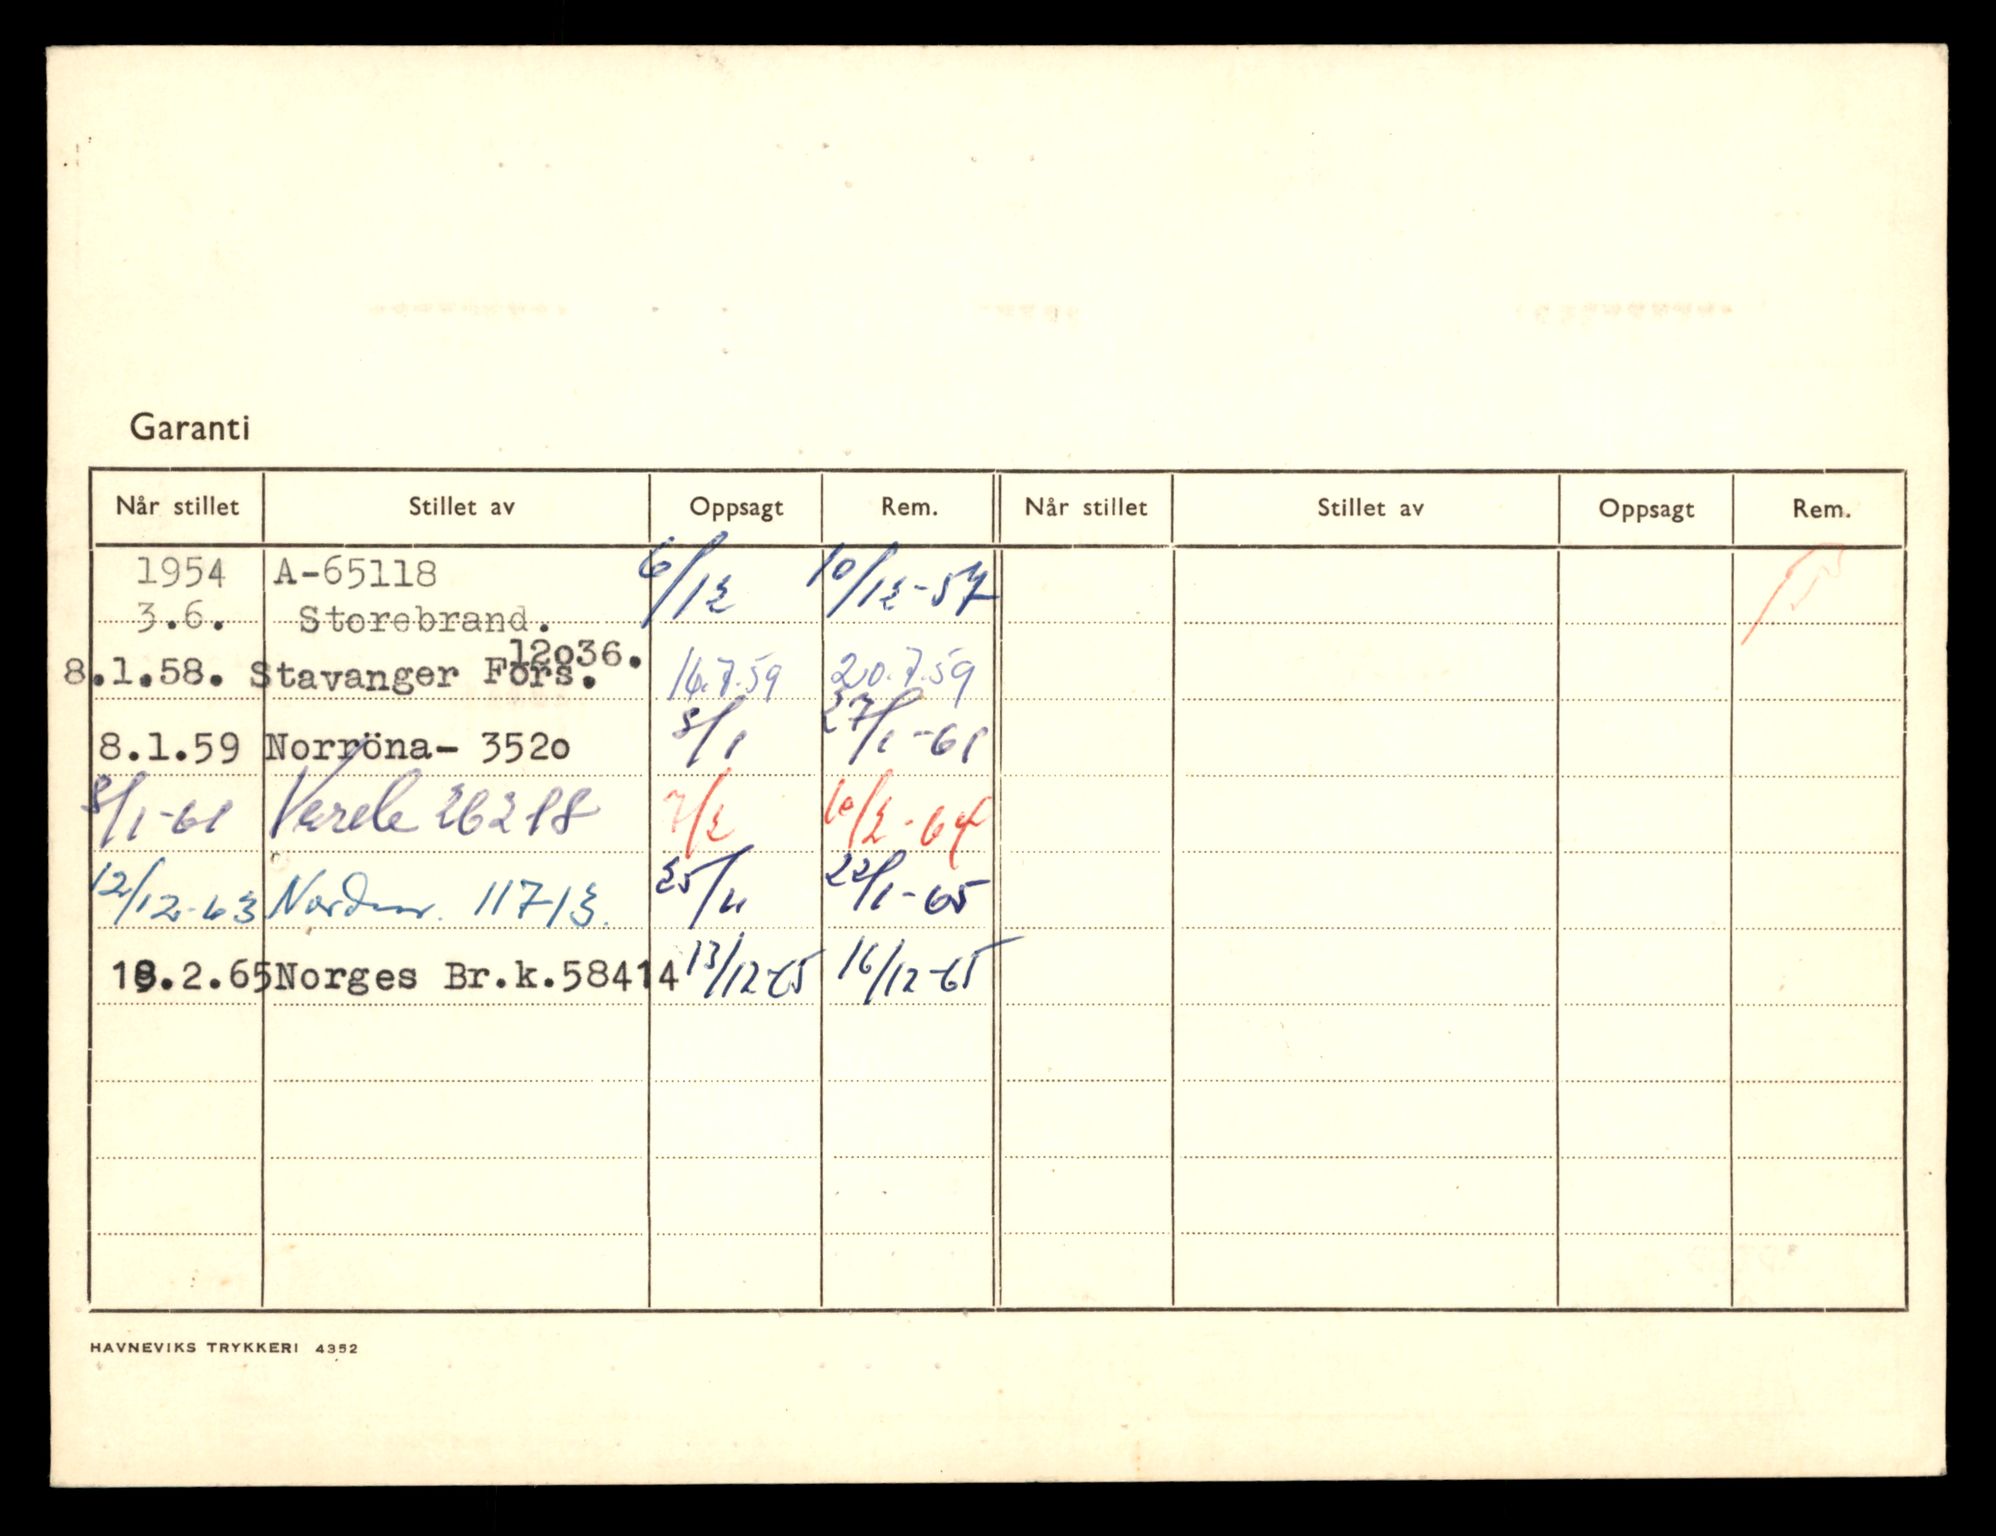 Garanti
Når stillet Stillet av Oppsagt Rem. Når stillet Stillet av Oppsagt Rem.
1954 A-65118 6/12 10/12-57
3.6. Storebrand.
12o36.
8.1.58. Stavanger Fors. 16.7.59 20.7.59
8.1.59 Norröna- 352o 5/1 27/1-61
8/1-61 26298 7/2 10/2-64
12/12-63 11713. 25/11 22/1-65
18.2.65 Norges Br.k.58414 13/12-65 16/12-65
HAVNEVIKS TRYKKERI 4352